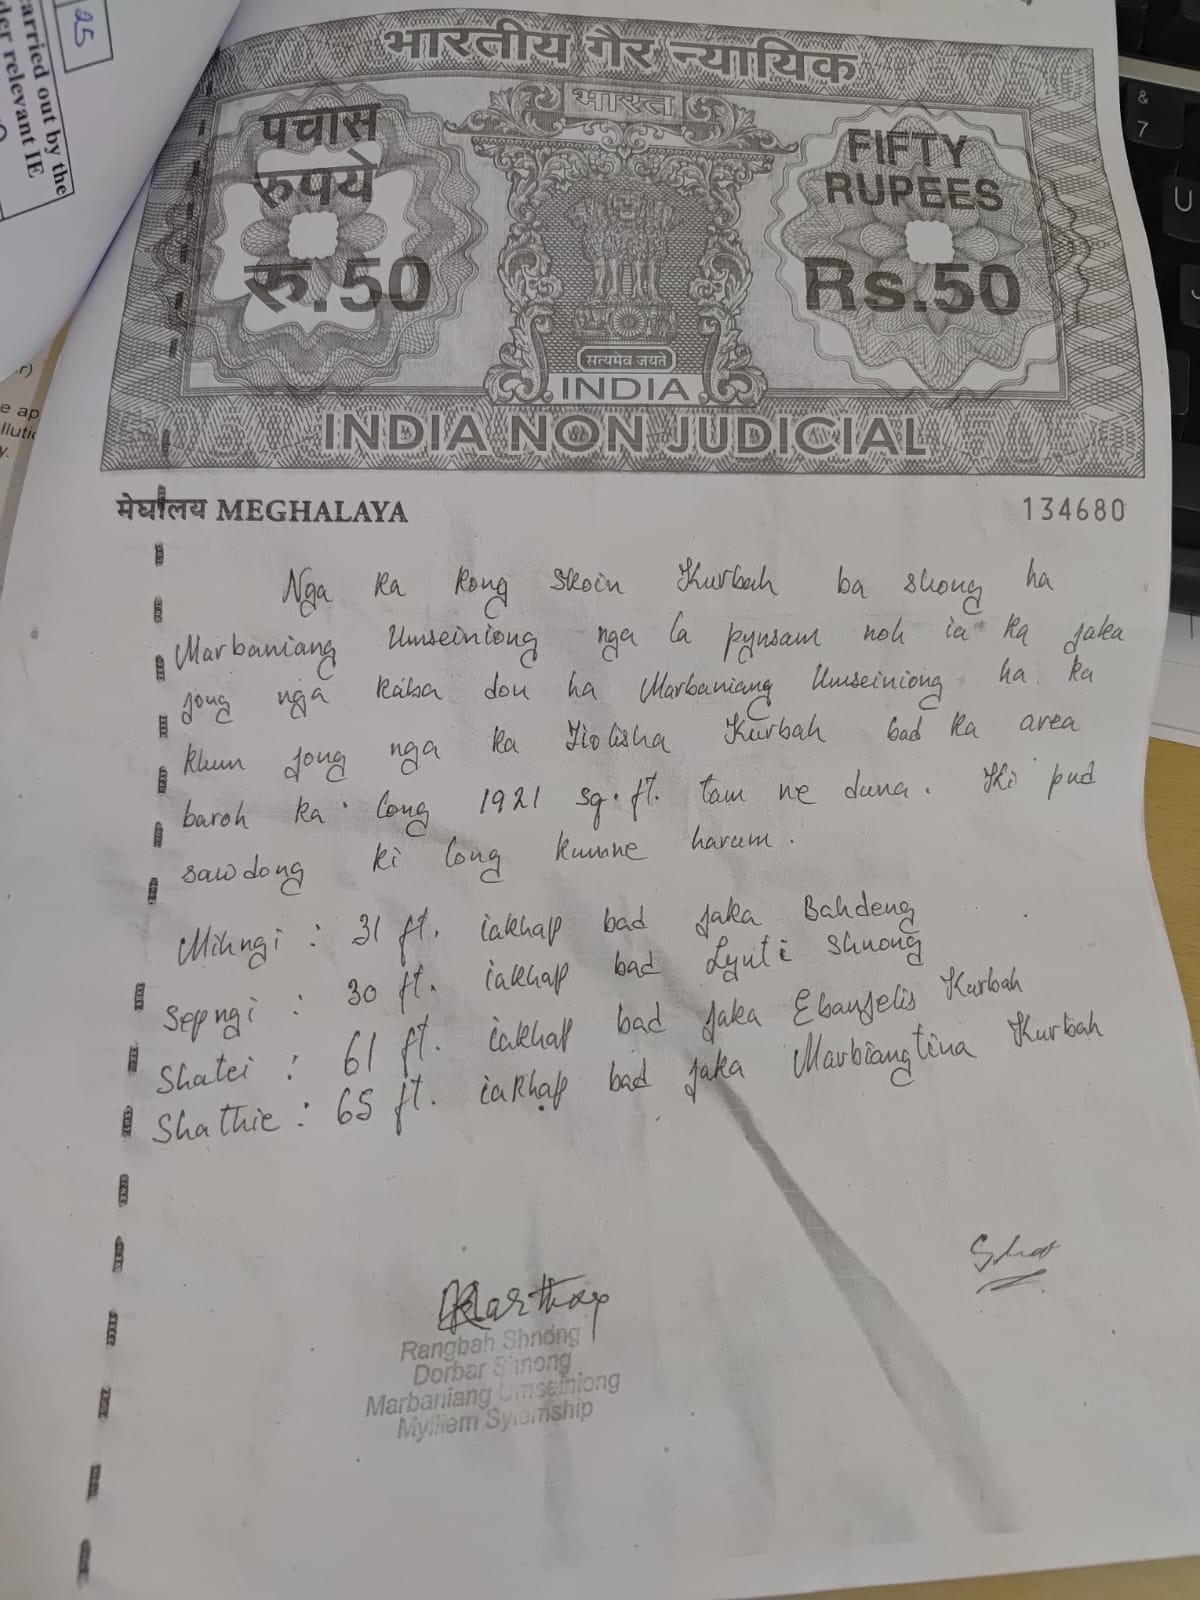 25
carried out by the
der relevant IE
भारतीय गैर न्यायिक
भारत
पचास
रुपये
रु.50
FIFTY
RUPEES
Rs.50
सत्यमेव जयते
INDIA
INDIA NON JUDICIAL
मेघालय MEGHALAYA
134680
Nga ka kong Skoin Kurbah ba shong ha
Marbaniang Umseiniong nga la pynsam noh ia ka jaka
jong nga kaba don ha Marbaniang Umseiniong ha ka
khun jong nga ka Kurbah bad ka area
baroh ka long 1921 sq.ft. tam ne duna. Ki pud
sawdong ki long kumne harum.
Mihngi : 31 ft. iakhap bad jaka Bahdeng
Sepngi : 30 ft. iakhap bad Lynti Shnong
Shatei : 61 ft. iakhap bad jaka Ebanjelis Kurbah
Shathie : 65 ft. iakhap bad jaka Marbiangtina Kurbah
Rangbah Shnong
Dorbar Shnong
Marbaniang Umseiniong
Mylliem Syiemship
&
7
U